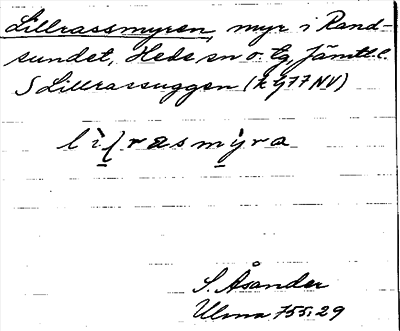 Lillrassmyren, myr i Rand-
sundet, Hede sn o. tg, Jämtl. l.
S Lillrassuggen (Z 977 NV)
lìlrasmỳra
S. Åsander
Ulma 755:29